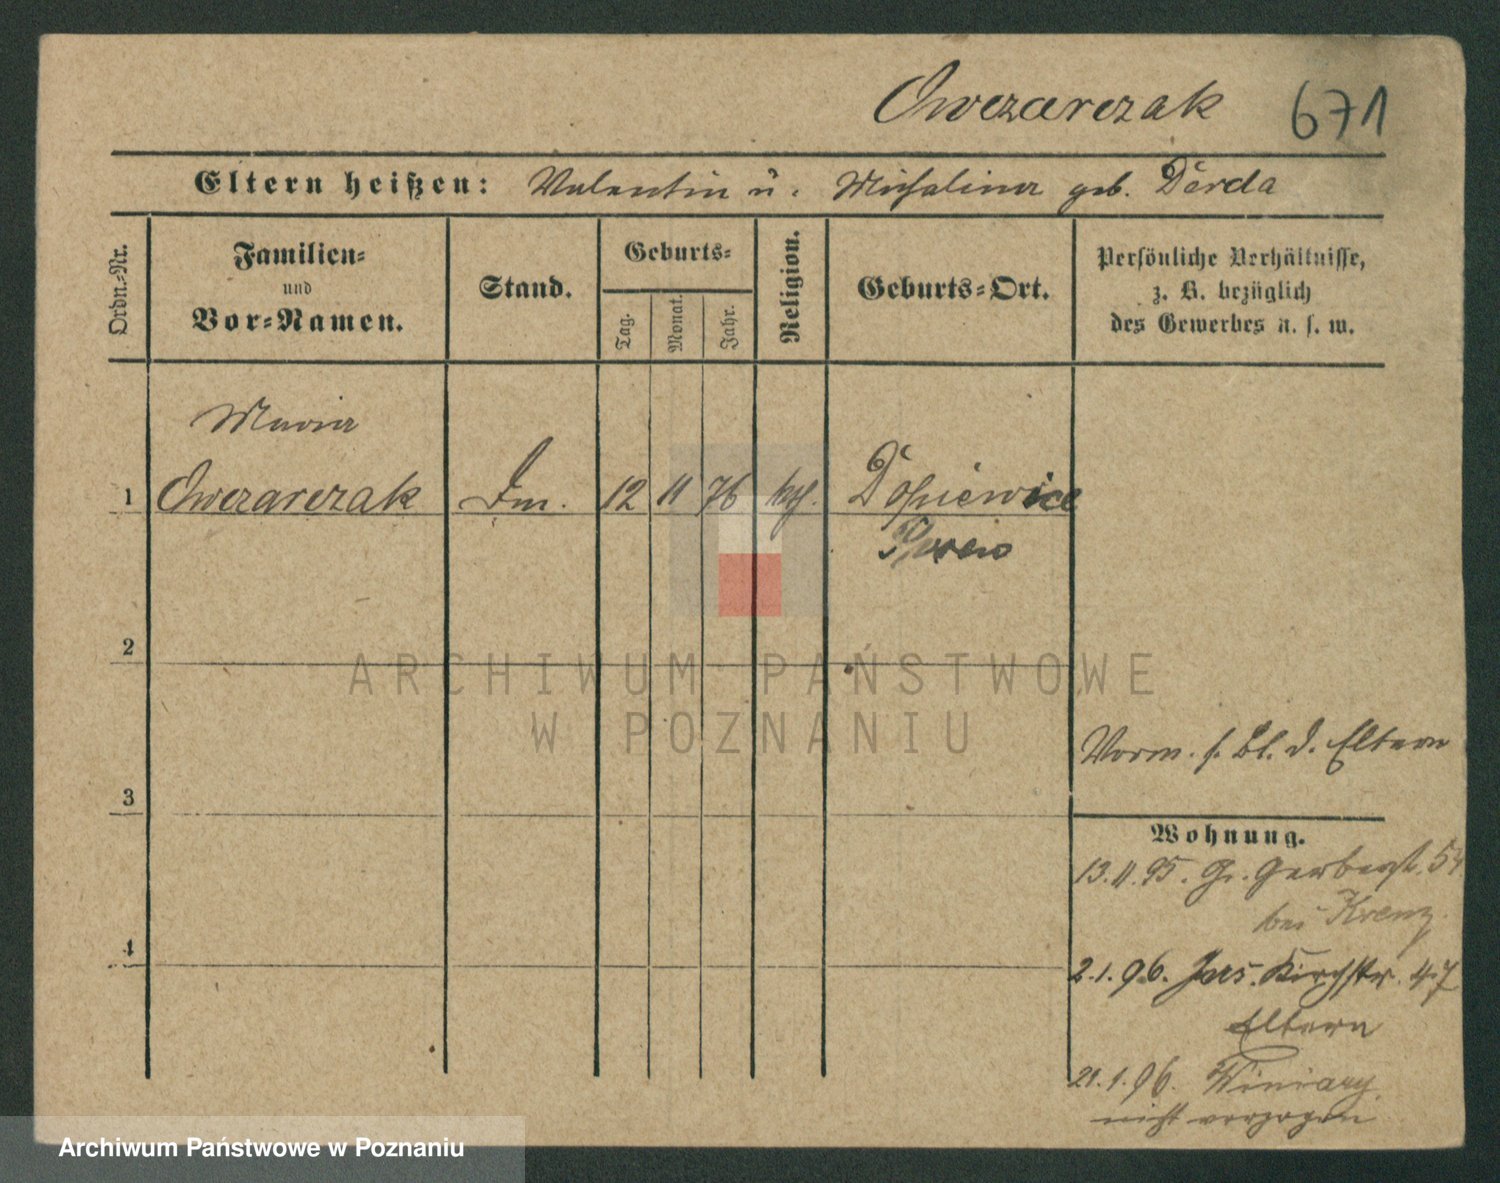 Owczarczak 671
Eltern heißen: Valentin u. Michalina geb. Derda
Ordn.-Nr.
Familien-
und
Vor-Namen.
Stand.
Geburts-
Tag.
Monat.
Jahr.
Religion.
Geburts-Ort.
Persönliche Verhältnisse,
z. B. bezüglich
des Gewerbes u. s. w.
Maria
1 Owczarczak 12 11 76 kth. Dopiewice
Posen
2
ARCHIWUM PAŃSTWOWE
W POZNANIU
Vorm. s. Bl. d. Eltern
3
Wohnung.
13.11.95. Gr. Gerberst. 54
bei Krenz.
4
2.1.96. Jers. Kirchstr. 47
Eltern
21.1.96. Winiary
nicht verzogen
Archiwum Państwowe w Poznaniu